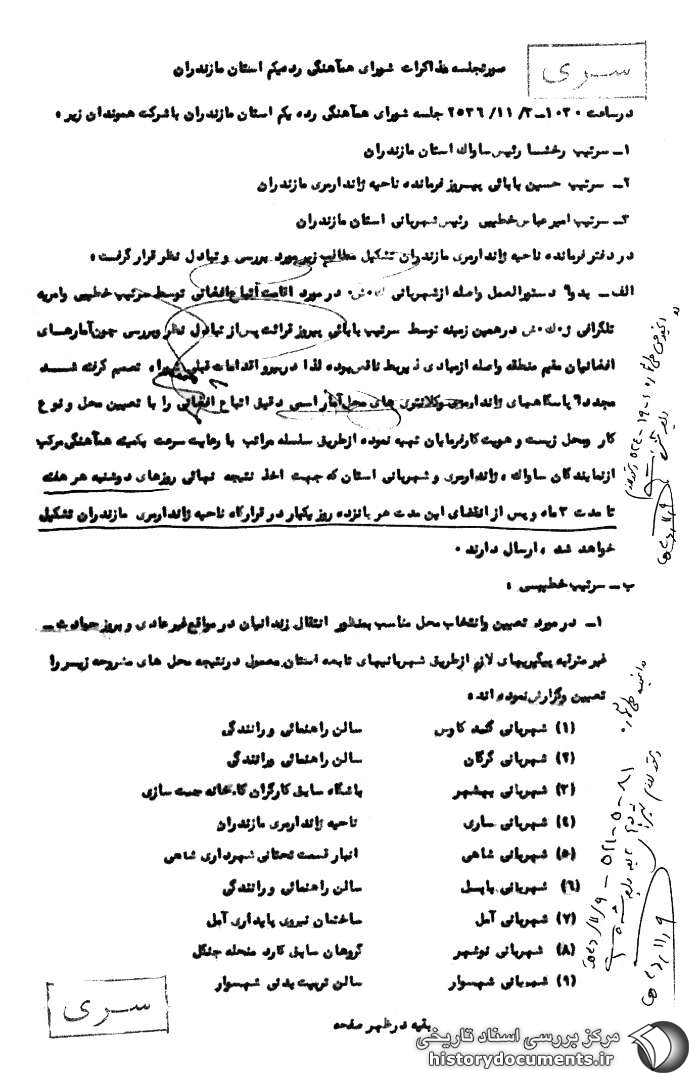 سری
صورتجلسه مذاکرات شورای همآهنگی رده یکم استان مازندران
در ساعت ۱۰۳۰ـ۳/ ۱۱/ ۲۵۳۶ جلسه شورای همآهنگی رده یکم استان مازندران با شرکت هموندان زیر :
۱ـ سرتیپ رخشا رئیس ساواک استان مازندران
۲ـ سرتیپ حسین بابائی پیروز فرمانده ناحیه ژاندارمری مازندران
۳ـ سرتیپ امیر عباس خطیبی رئیس شهربانی استان مازندران
در دفتر فرمانده ناحیه ژاندارمری مازندران تشکیل مطالب زیر مورد بررسی و تبادل نظر قرار گرفت :
الف ـ بدوا" دستورالعمل واصله از شهربانی ک ش در مورد اقامت اتباع افغانی توسط سرتیپ خطیبی و امریه
تلگرافی ژ ک ش در همین زمینه توسط سرتیپ بابائی پیروز قرائت پس از تبادل نظر و بررسی چون آمارهای
افغانیان مقیم منطقه واصله از مبادی ذیربط ناقص بوده لذا در پیرو اقدامات قبلی تصمیم گرفته شد
مجددا" پاسگاههای ژاندارمری و کلانتری های محل آمار اسمی دقیق اتباع افغانی را با تعیین محل و نوع
کار و محل زیست و هویت کارفرمایان تهیه نموده از طریق سلسله مراتب با رعایت سرعت بکمیته همآهنگی مرکب
از نمایندگان ساواک ، ژاندارمری و شهربانی استان که جهت اخذ نتیجه نهائی روزهای دوشنبه هر هفته
تا مدت ۳ ماه و پس از انقضای این مدت هر پانزده روز یکبار در قرارگاه ناحیه ژاندارمری مازندران تشکیل
خواهد شد ، ارسال دارند .
ب ـ سرتیپ خطیبی :
۱ـ در مورد تعیین و انتخاب محل مناسب بمنظور انتقال زندانیان در مواقع غیر عادی و بروز حوادث ـ
غیر مترقبه پیگیریهای لازم از طریق شهربانیهای تابعه استان معمول در نتیجه محل های مشروحه زیر را
تعیین و گزارش نموده اند :
(۱) شهربانی گنبد کاوس سالن راهنمائی و رانندگی
(۲) شهربانی گرگان سالن راهنمائی و رانندگی
(۳) شهربانی بهشهر باشگاه سابق کارگران کارخانه چیت سازی
(٤) شهربانی ساری ناحیه ژاندارمری مازندران
(۵) شهربانی شاهی انبار قسمت تحتانی شهرداری شاهی
(٦) شهربانی بابل سالن راهنمائی و رانندگی
(۷) شهربانی آمل ساختمان نیروی پایداری آمل
(۸) شهربانی نوشهر گروهان سابق گارد منحله جنگل
(۹) شهربانی شهسوار سالن تربیت بدنی شهسوار
سری
بقیه در ظهر صفحه
مرکز بررسی اسناد تاریخی
historydocuments.ir